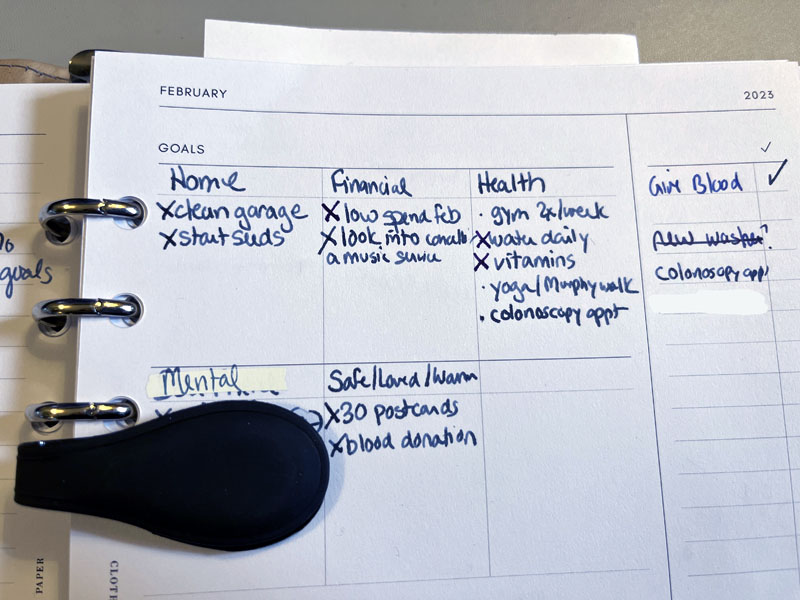 FEBRUARY
2023
GOALS
✓
Home
Xclean garage
Xstart seeds
Financial
X low spend feb
X look into
a music service
Health
· gym 2x/week
X water daily
X vitamins
· yoga/Murphy walk
· colonoscopy appt
Give Blood ✓
new washer?
colonoscopy appt
Mental
Safe/Loved/Warm
X30 postcards
Xblood donation
goals
PAPER
CLOTH